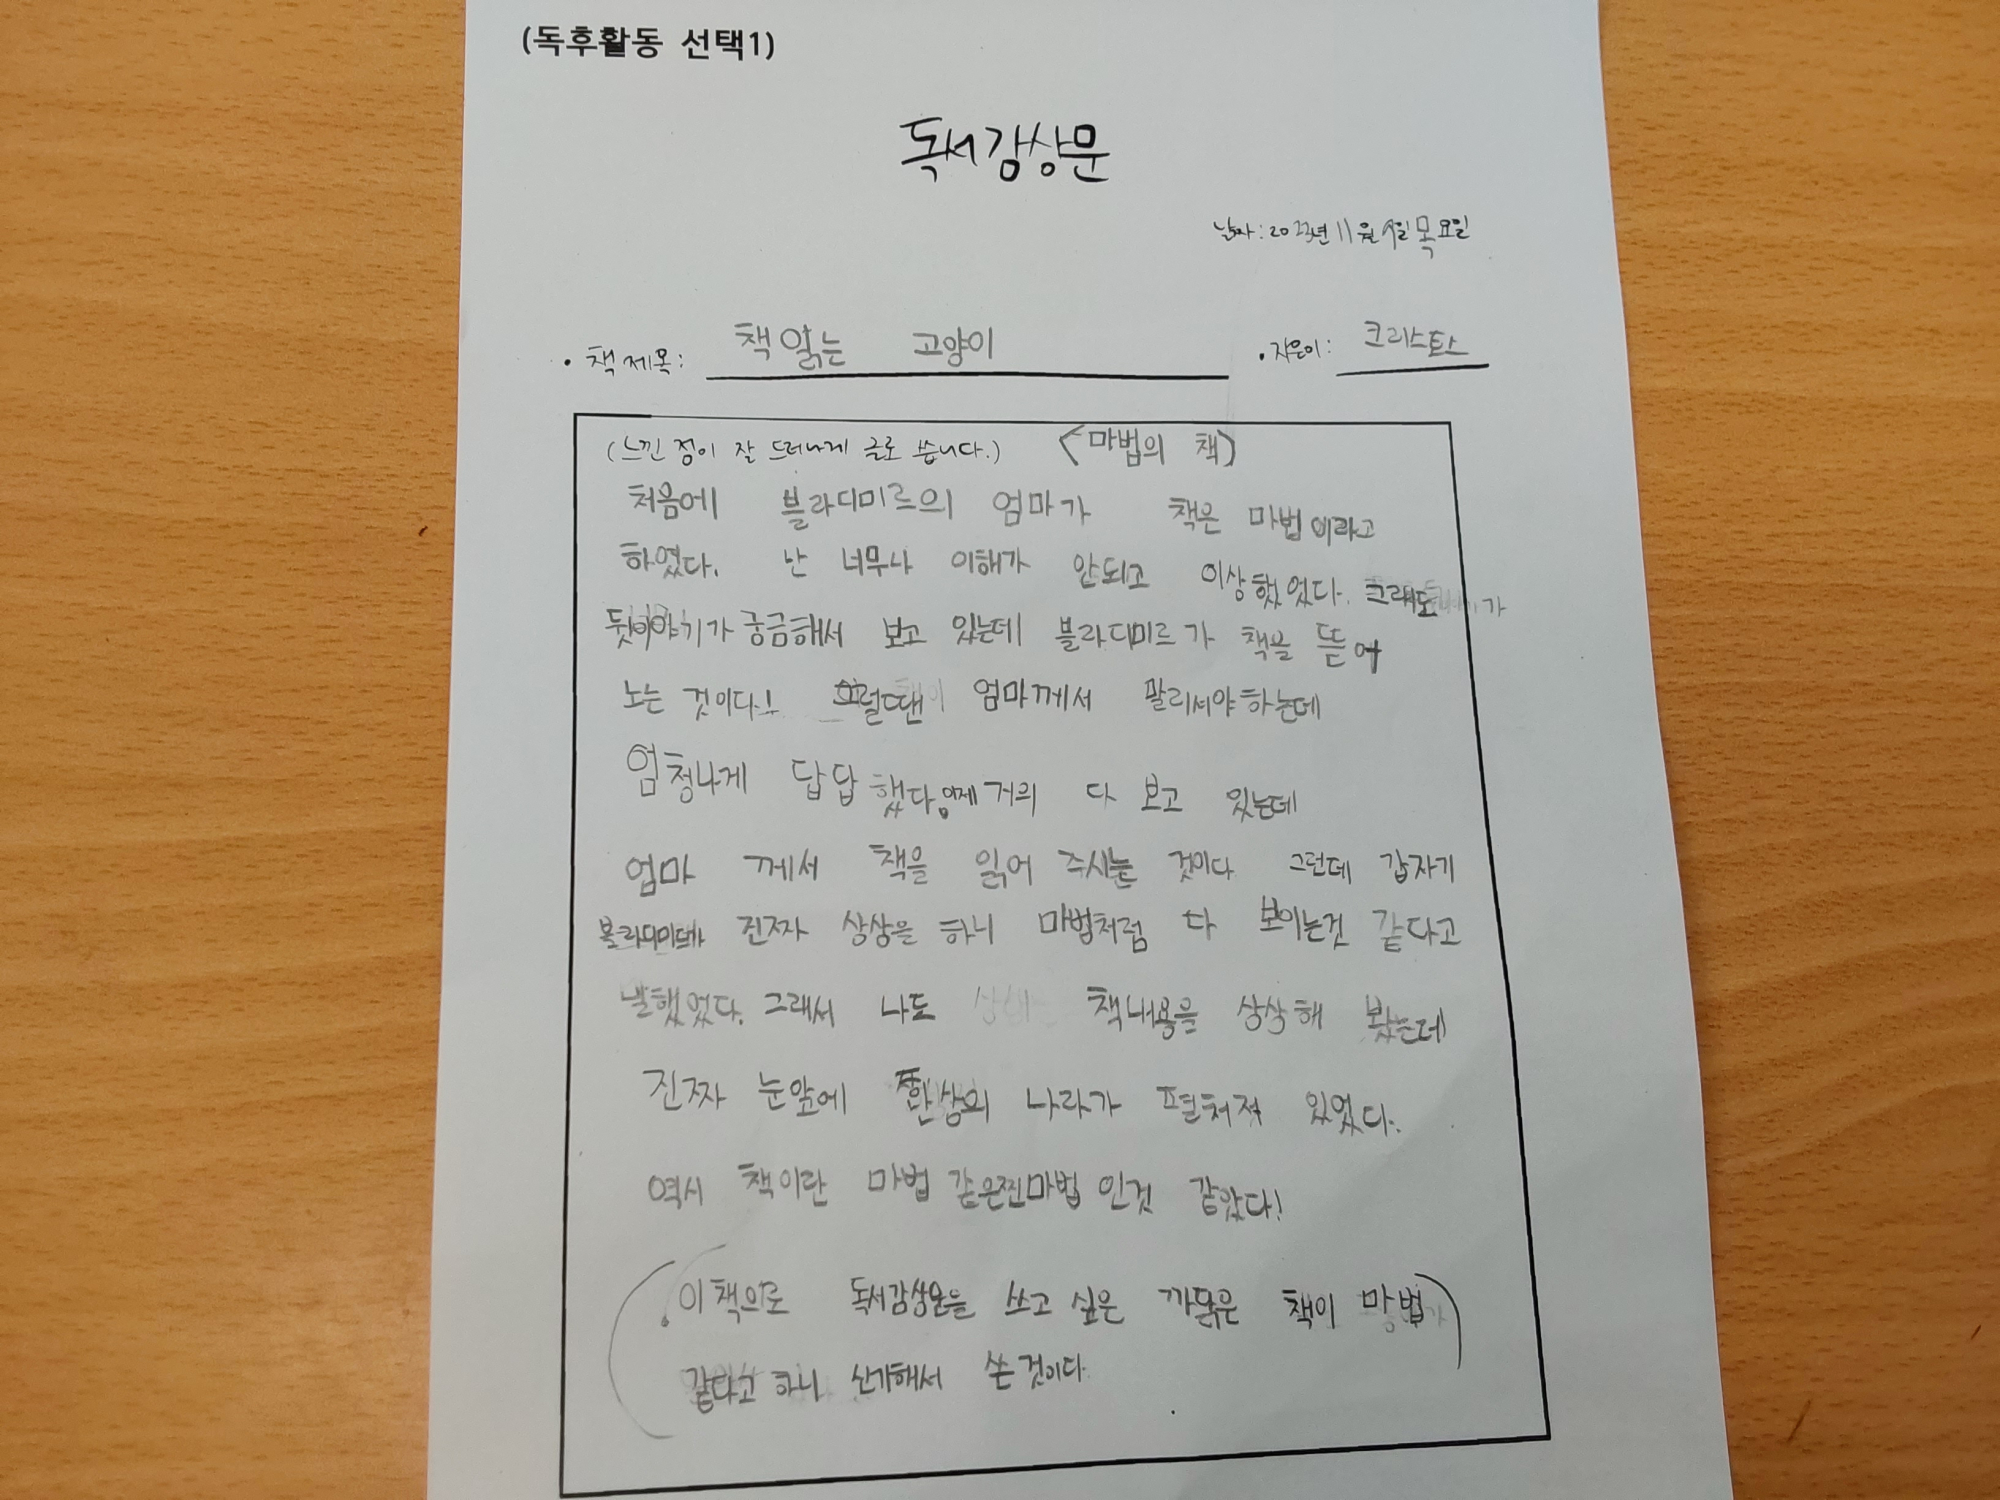 (독후활동 선택1)
독서감상문
날짜: 2023년 11월 9일 목요일
• 책 제목: 책 읽는 고양이 • 지은이: 크리스토스
(느낀 점이 잘 드러나게 글로 씁니다.) <마법의 책>
처음에 블라디미르의 엄마가 책은 마법이라고
하였다. 난 너무나 이해가 안되고 이상했었다. 그래도
뒷이야기가 궁금해서 보고 있는데 블라디미르가 책을 뜯어
노는 것이다! 그럴땐 엄마께서 말리셔야하는데
엄청나게 답답했다. 이제 거의 다 보고 있는데
엄마 께서 책을 읽어 주시는 것이다 그런데 갑자기
블라디미르가 진짜 상상을 하니 마법처럼 다 보이는것 같다고
말했었다. 그래서 나도 책내용을 상상해 봤는데
진짜 눈앞에 환상의 나라가 펼처저 있었다.
역시 책이란 마법 같은찐마법 인것 같았다!
• 이 책으로 독서감상문을 쓰고 싶은 까닭은 책이 마법
같다고 하니 신기해서 쓴 것이다